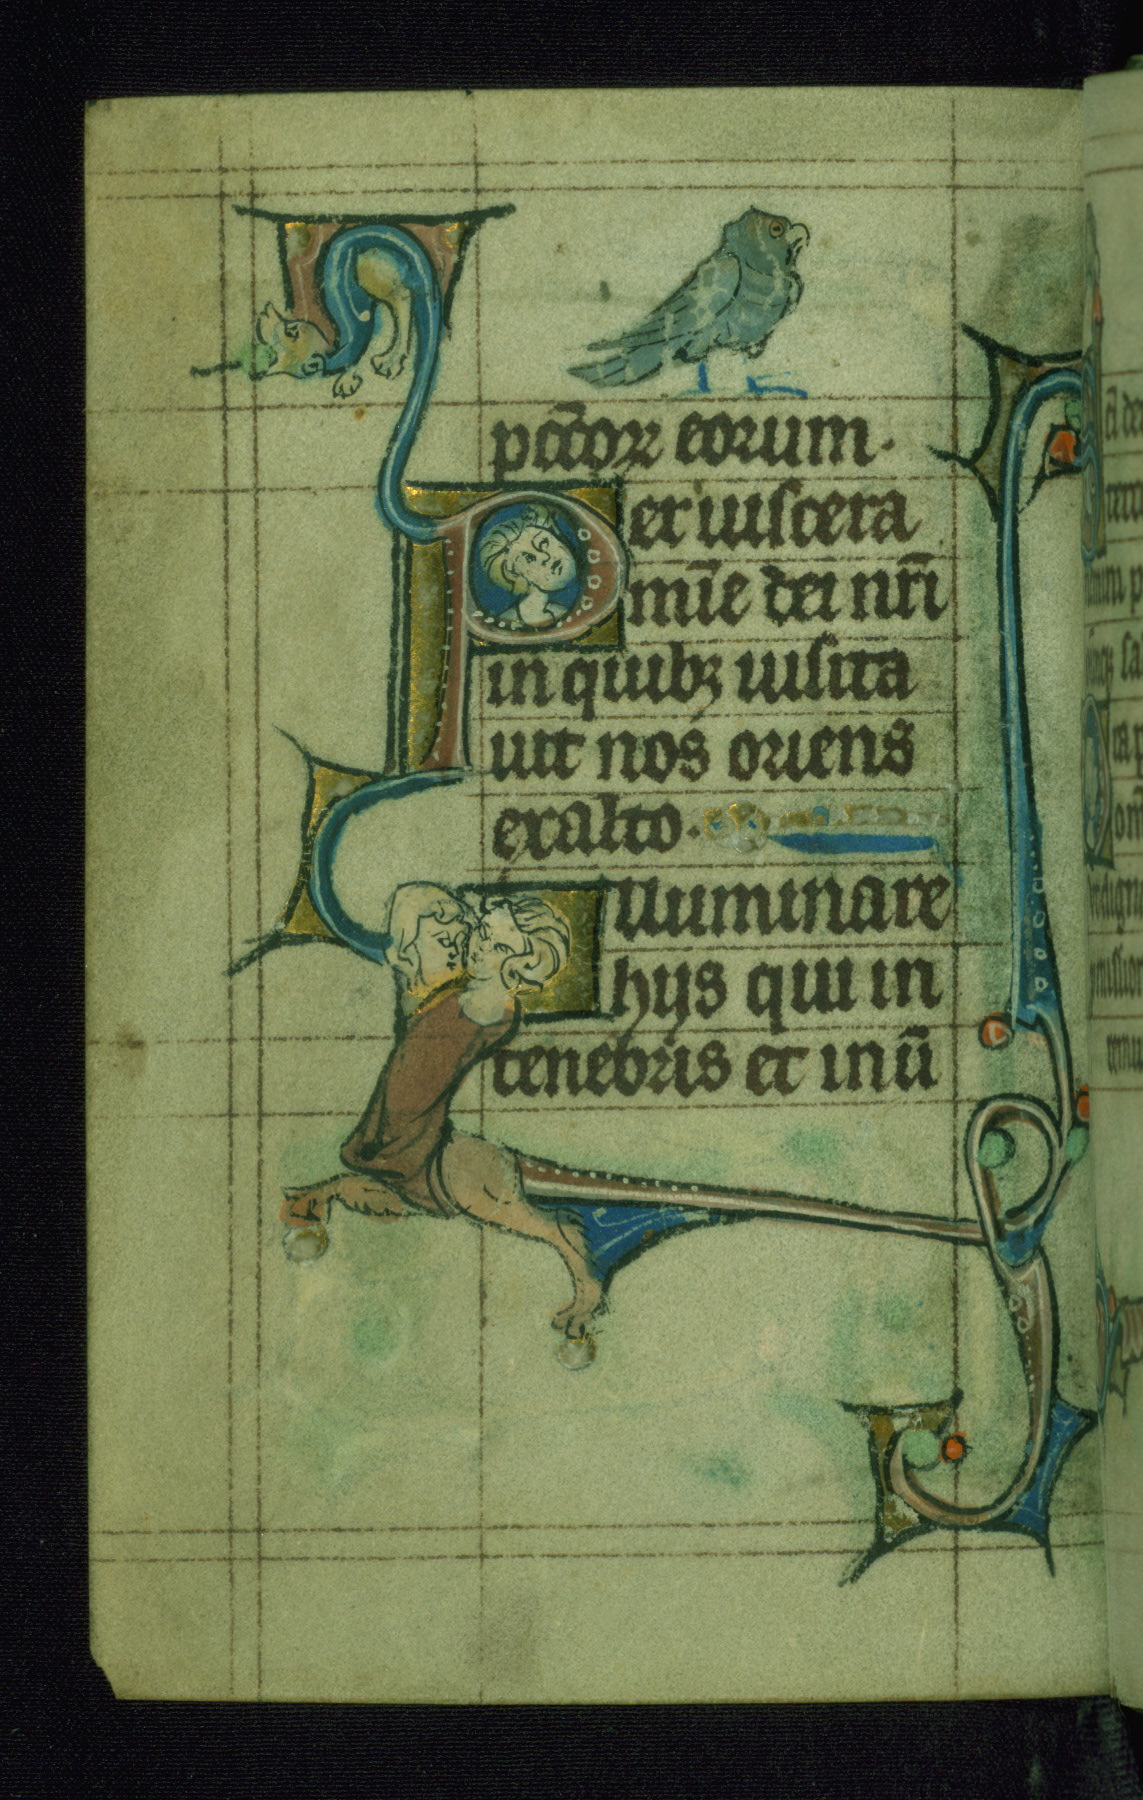 pctōꝝ eorum.
Per uiscera
mīe dei nr̄i
in quibꝫ uisita
uit nos oriens
exalto.
Illuminare
hijs qui in
tenebris et in ū